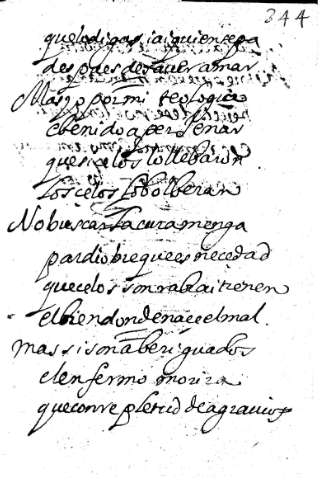 244
quelodigas iai quien sepa
despues de sauer amar
Mas yo por mi teologia
e benido a persenar
que si celos lo llebaron
los celos lo bolberan
No buscas la cura menga
par diobre que es necedad
que celos son rabia i tienen
el bien donde nace el mal
mas si son aberiguados
el enfermo morira
que con repletud de agravios